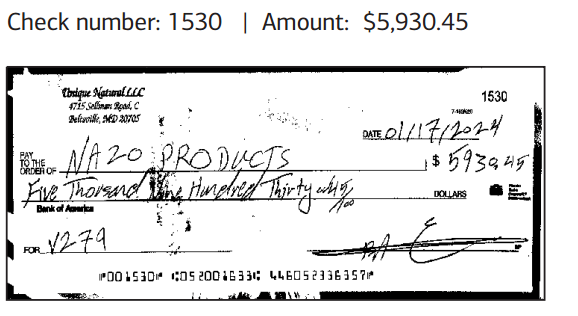 Check number: 1530 | Amount: $5,930.45
Unique Natural LLC
4735 Sellman Road, C
Beltsville, MD 20705
1530
DATE 01/17/2024
PAY TO THE ORDER OF NAZO PRODUCTS $ 5930.45
Five Thousand Nine Hundred Thirty and 45/100 DOLLARS
Bank of America
FOR V279
⑈001530⑈ ⑆052001633⑆ 446052336357⑈